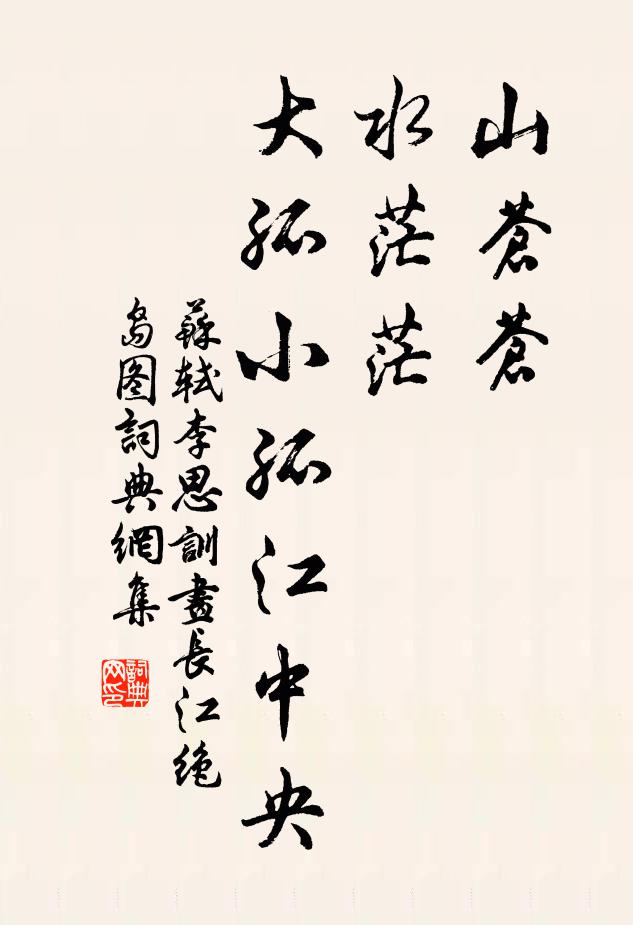 山蒼蒼
水茫茫
大孤小孤江中央
蘇軾李思訓畫長江絶
島图詞典網集
詞典网印